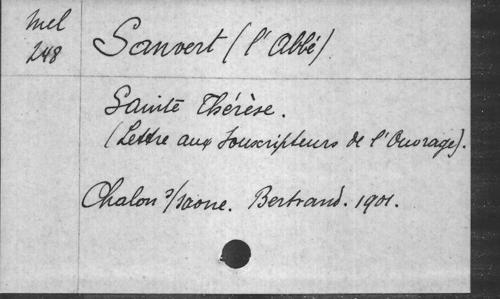 Mel
248
Sauvert (l'Abbé)
Sainte Thérèse.
(Lettre aux Souscripteurs de l'Ouvrage).
Chalon s/Saone. Bertrand. 1901.